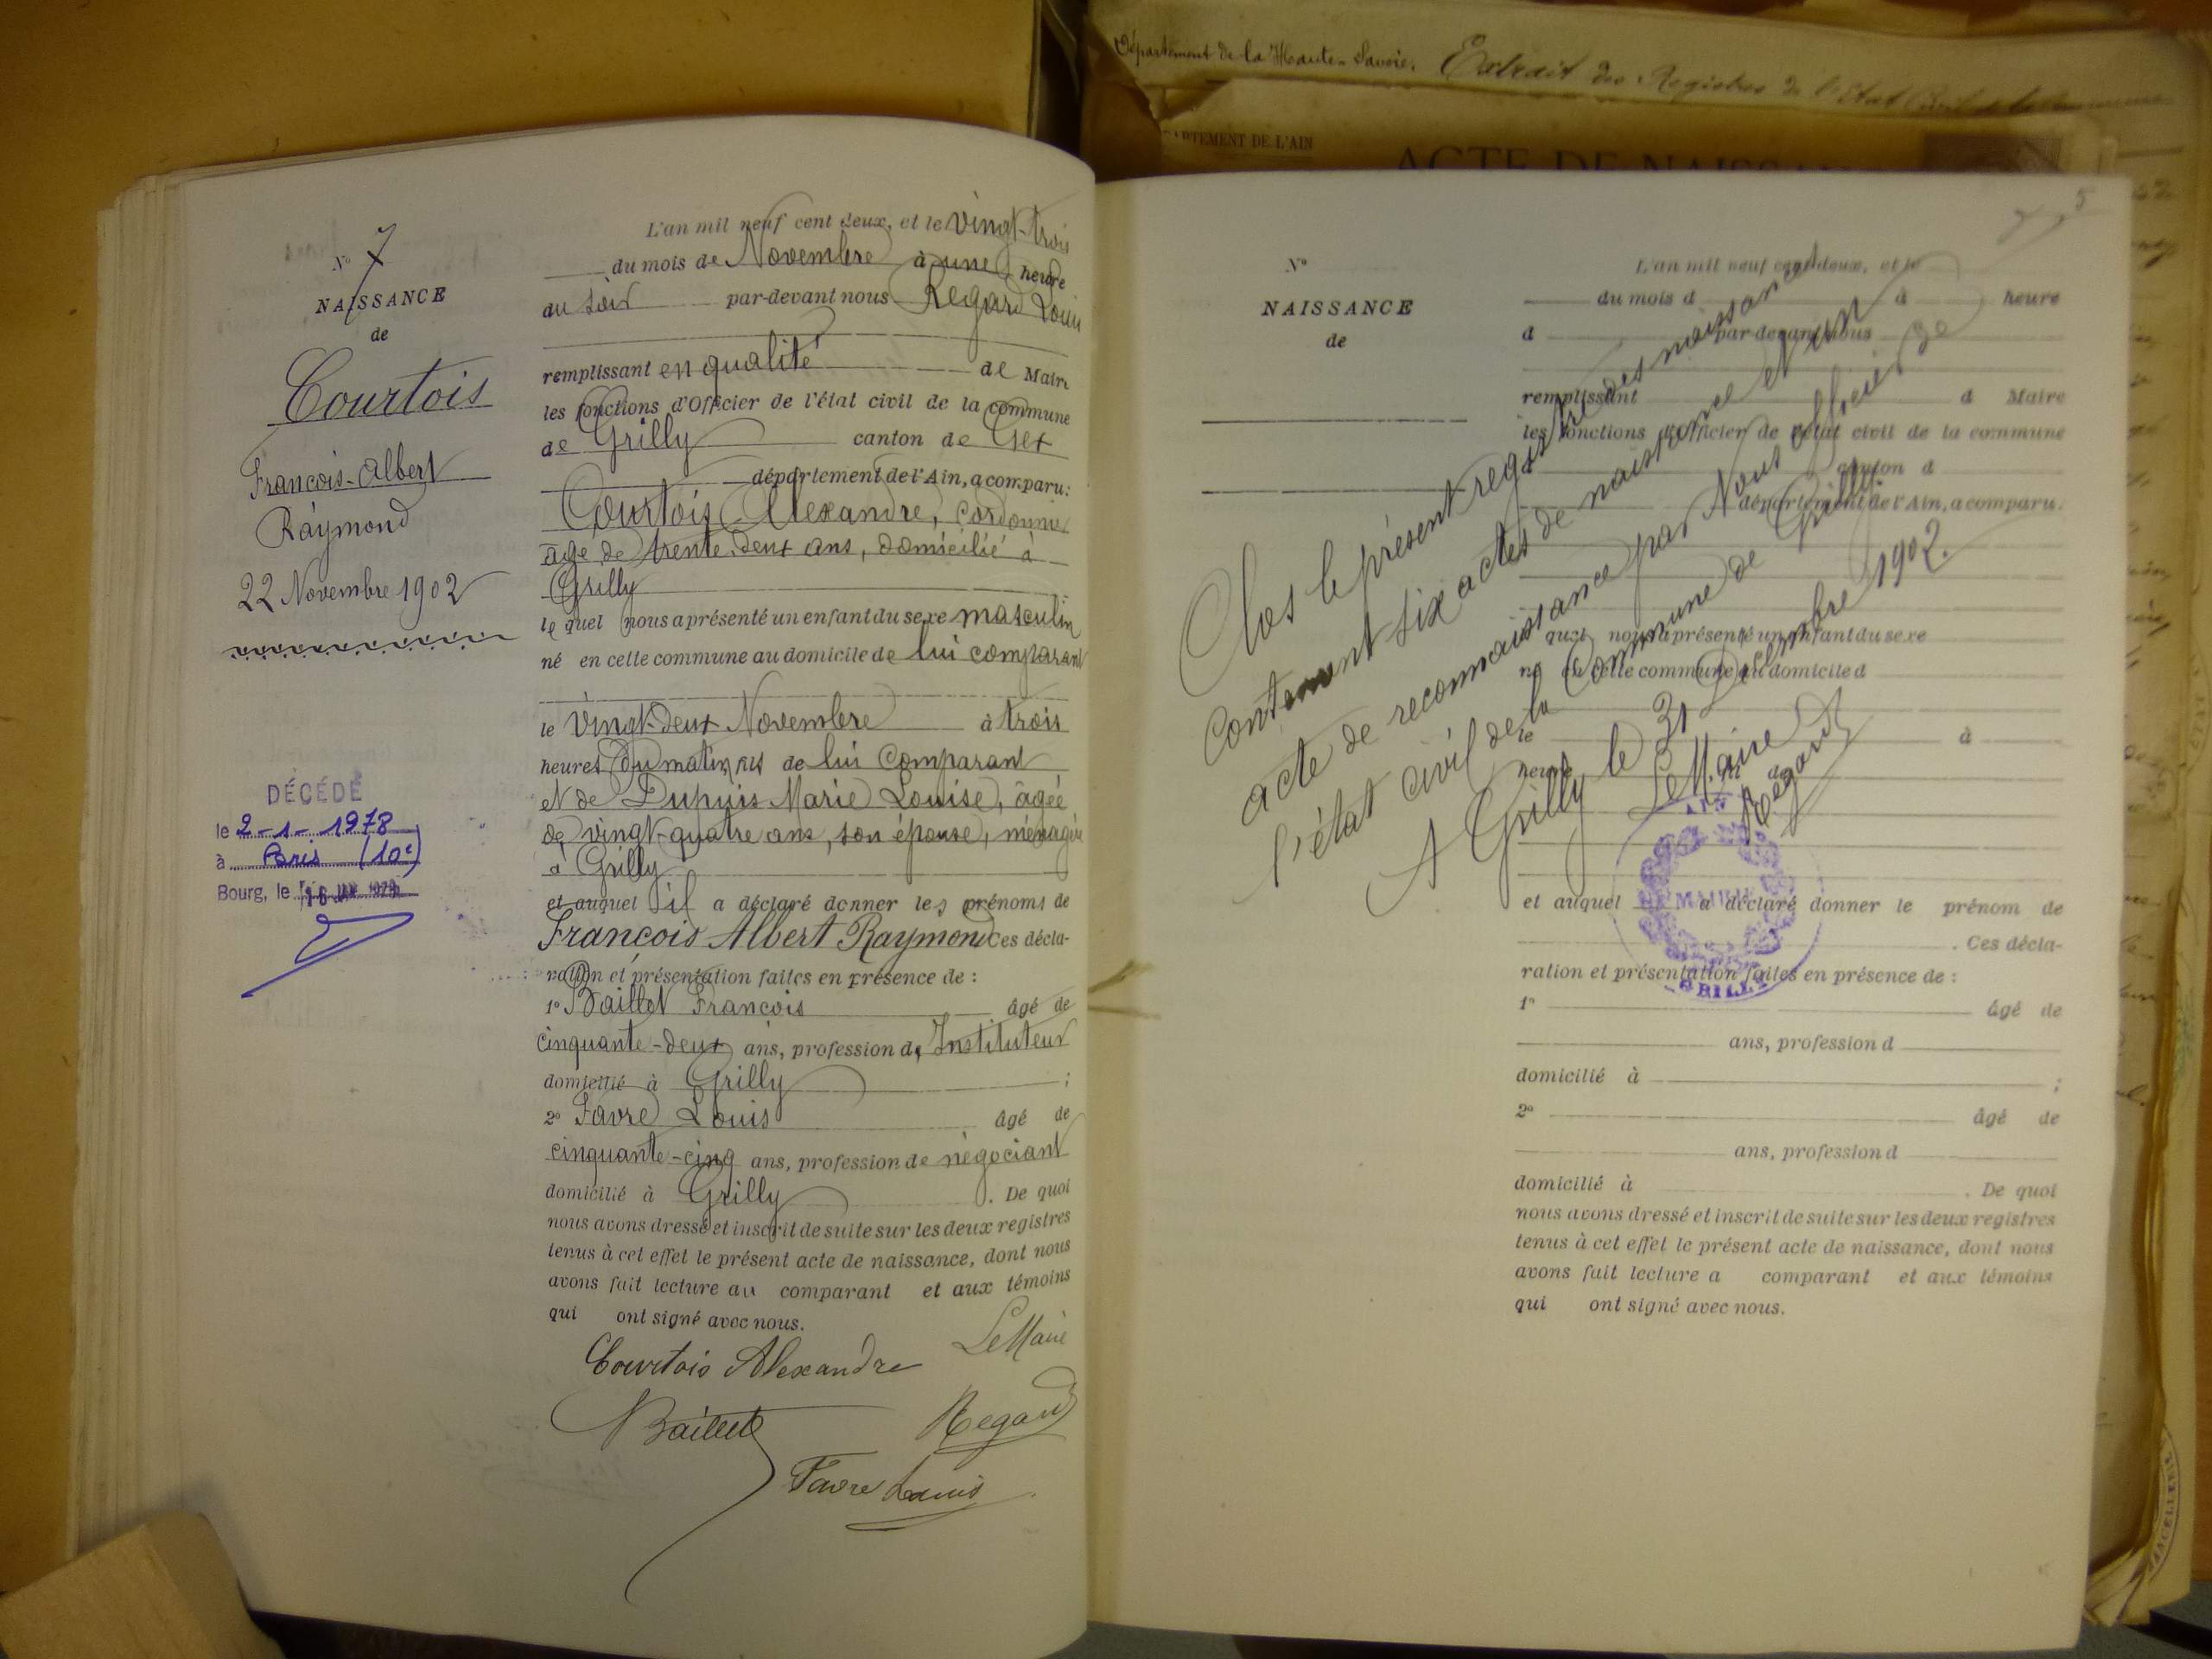 Département de la Haute-Savoie. Extrait des Registres de l'Etat Civil de la Commune
ARTEMENT DE L'AIN
ACTE DE NAISSAN
N° 7
NAISSANCE
de
Courtois
François-Albert
Raymond
22 Novembre 1902
DÉCÉDÉ
le 2-1-1978
à Paris (10e)
Bourg, le 16
L'an mil neuf cent deux, et le vingt-trois
du mois de Novembre à une heure
du soir par-devant nous Regard Louis
remplissant en qualité de Maire
les fonctions d'Officier de l'état civil de la commune
de Grilly canton de Gex
département de l'Ain, a comparu:
Courtois Alexandre, cordonnier
âgé de trente deux ans, domicilié à
Grilly
le quel nous a présenté un enfant du sexe masculin
né en cette commune au domicile de lui comparant
le vingt-deux Novembre à trois
heures du matin, fils de lui Comparant
et de Dupuis Marie Louise, âgée
de vingt-quatre ans, son épouse, ménagère
à Grilly
et auquel il a déclaré donner les prénoms de
François Albert Raymond Ces décla-
ration et présentation faites en présence de :
1° Baillet François âgé de
cinquante-deux ans, profession d' Instituteur
domicilié à Grilly ;
2° Favre Louis âgé de
cinquante-cinq ans, profession de négociant
domicilié à Grilly . De quoi
nous avons dressé et inscrit de suite sur les deux registres
tenus à cet effet le présent acte de naissance, dont nous
avons fait lecture au comparant et aux témoins
qui ont signé avec nous.
Le Maire
Courtois Alexandre
Baillet
Regard
Favre Louis
5
N°
NAISSANCE
de
L'an mil neuf cent deux, et le
du mois d à heure
d par-devant nous
remplissant d Maire
les fonctions d'Officier de l'état civil de la commune
d canton d
département de l'Ain, a comparu:
quel nous a présenté un enfant du sexe
né en cette commune au domicile d
le à
heure
et auquel a déclaré donner le prénom de
. Ces décla-
ration et présentation faites en présence de :
1° âgé de
ans, profession d
domicilié à ;
2° âgé de
ans, profession d
domicilié à . De quoi
nous avons dressé et inscrit de suite sur les deux registres
tenus à cet effet le présent acte de naissance, dont nous
avons fait lecture a comparant et aux témoins
qui ont signé avec nous.
Clos le présent registre des naissances
contenant six actes de naissance et un
acte de reconnaissance par Nous officier de
l'état civil de la Commune de Grilly
A Grilly le 31 Décembre 1902.
Le Maire
Regard
AIN
MAIRIE
GRILLY